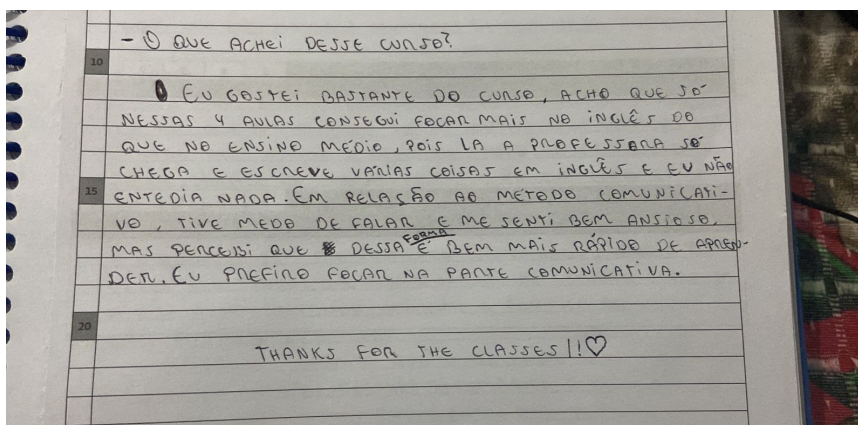 - O QUE ACHEI DESSE CURSO?
10
EU GOSTEI BASTANTE DO CURSO, ACHO QUE SÓ
NESSAS 4 AULAS CONSEGUI FOCAR MAIS NO INGLÊS DO
QUE NO ENSINO MÉDIO, POIS LA A PROFESSORA SÓ
CHEGA E ESCREVE VÁRIAS COISAS EM INGLÊS E EU NÃO
15 ENTEDIA NADA. EM RELAÇÃO AO METODO COMUNICATI-
VO, TIVE MEDO DE FALAR E ME SENTI BEM ANSIOSO,
MAS PERCEBI QUE DESSA FORMA É BEM MAIS RÁPIDO DE APREN-
DER. EU PREFIRO FOCAR NA PARTE COMUNICATIVA.
20
THANKS FOR THE CLASSES!!♡